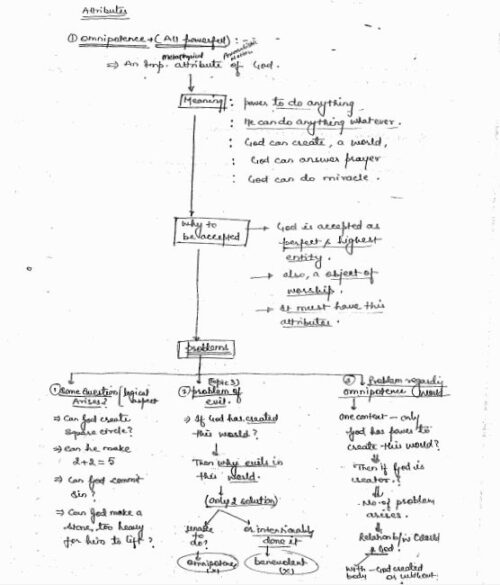 Attributes
① Omnipotence → (All powerful) :-
metaphysical
⇒ An Imp. attribute of God.
Meaning : power to do anything
: He can do anything whatever.
: God can create, a world,
God can answer prayer
: God can do miracle.
Why to be accepted → God is accepted as
perfect & highest
entity.
→ also, a object of
worship.
→ It must have this
attributes.
problems
① Some Question / logical
Arises? aspect
⇒ Can God create
square circle?
⇒ Can he make
2+2=5
⇒ Can God commit
sin?
⇒ Can God make a
stone, too heavy
for him to lift?
(topic 3)
② problem of
evil.
⇒ If God has created
this world?
Then why evils in
this world.
(only 2 solution)
unable
to
do?
omnipotence
(x)
or intentionally
done it
benevolent
(x)
③ Problem regarding
omnipotence & world
one context - only
God has power to
create this world?
Then if God is
creator?
No. of problem
arises.
Relation b/w
& God?
with - God created
body or without